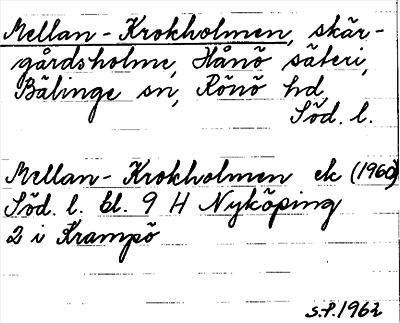 Mellan-Krokholmen, skär-
gårdsholme, Hånö säteri,
Bälinge sn, Rönö hd,
Söd. l.
Mellan-Krokholmen ek (1960)
Söd. l. bl. 9 H Nyköping
2 i Krampö
S.P. 1962